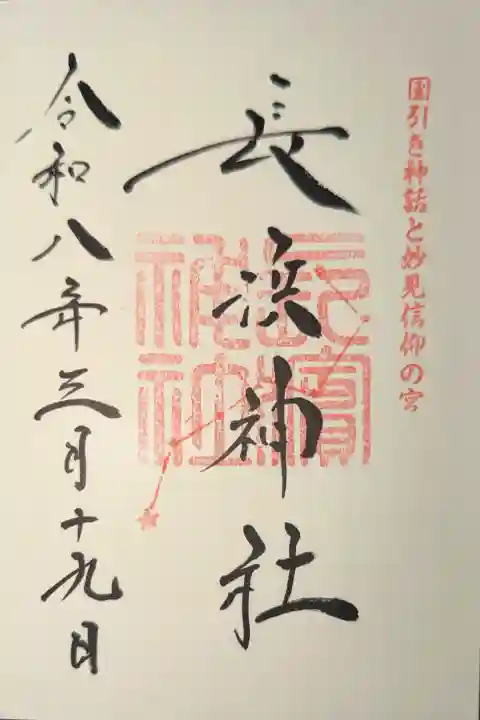 國引き神話と妙見信仰の宮
長浜神社
令和八年三月十九日